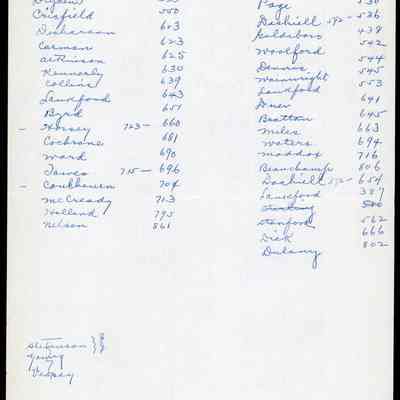 Crisfield 550
Dickerson 603
Carman 623
Atkinson 625
Kennerly 630
Collins 639
Lankford 643
Byrd 651
- Horsey 723 - 660
Cochrane 681
Ward 690
Tawes 715 - 696
- Coulbourn 704
McCready 713
Holland 795
Nelson 861
Stevenson }
Young
Vesey
Page 530
Dashiell 592 - 536
Goldsboro 438
Woolford 542
Dennis 544
Wainwright 545
Lankford 553
Duer 641
Bratton 645
Miles 663
Waters 694
Maddox 716
Beauchamp 806
Dashiell 592 - 654
Lankford 387
500
Stanford 562
Dick 666
Dulany 802